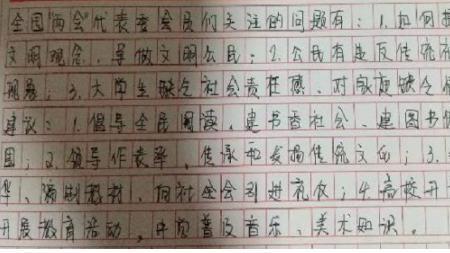 全国"两会"代表委会员们关注的问题有：1.如何提
文明观念，争做文明公民；2.公民有违反传统
现象；3.大学生缺乏社会责任感、对家庭缺乏
建议：1.倡导全民阅读，建书香社会、建图书
国；2.领导作表率，传承和发扬传统文化；3.
华、编制教材，向社会引进礼仪；4.高校开
开展教育活动，中页普及音乐、美术知识。